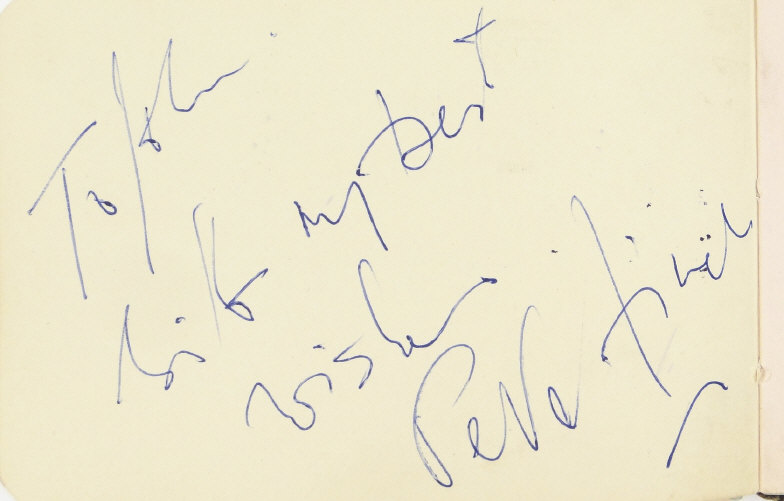 To John
with my best
wishes
Peter Finch